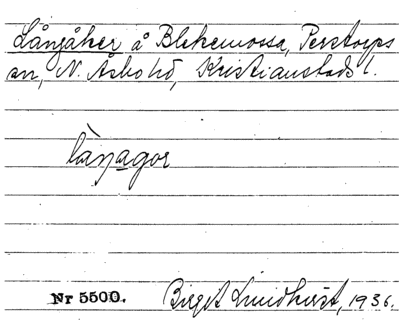 Långåker å Blekemossa, Perstorps
sn, N. Åsbo hd, Kristianstads l.
làŋagor
Nr 5500. Birgit Lundkvist, 1936.